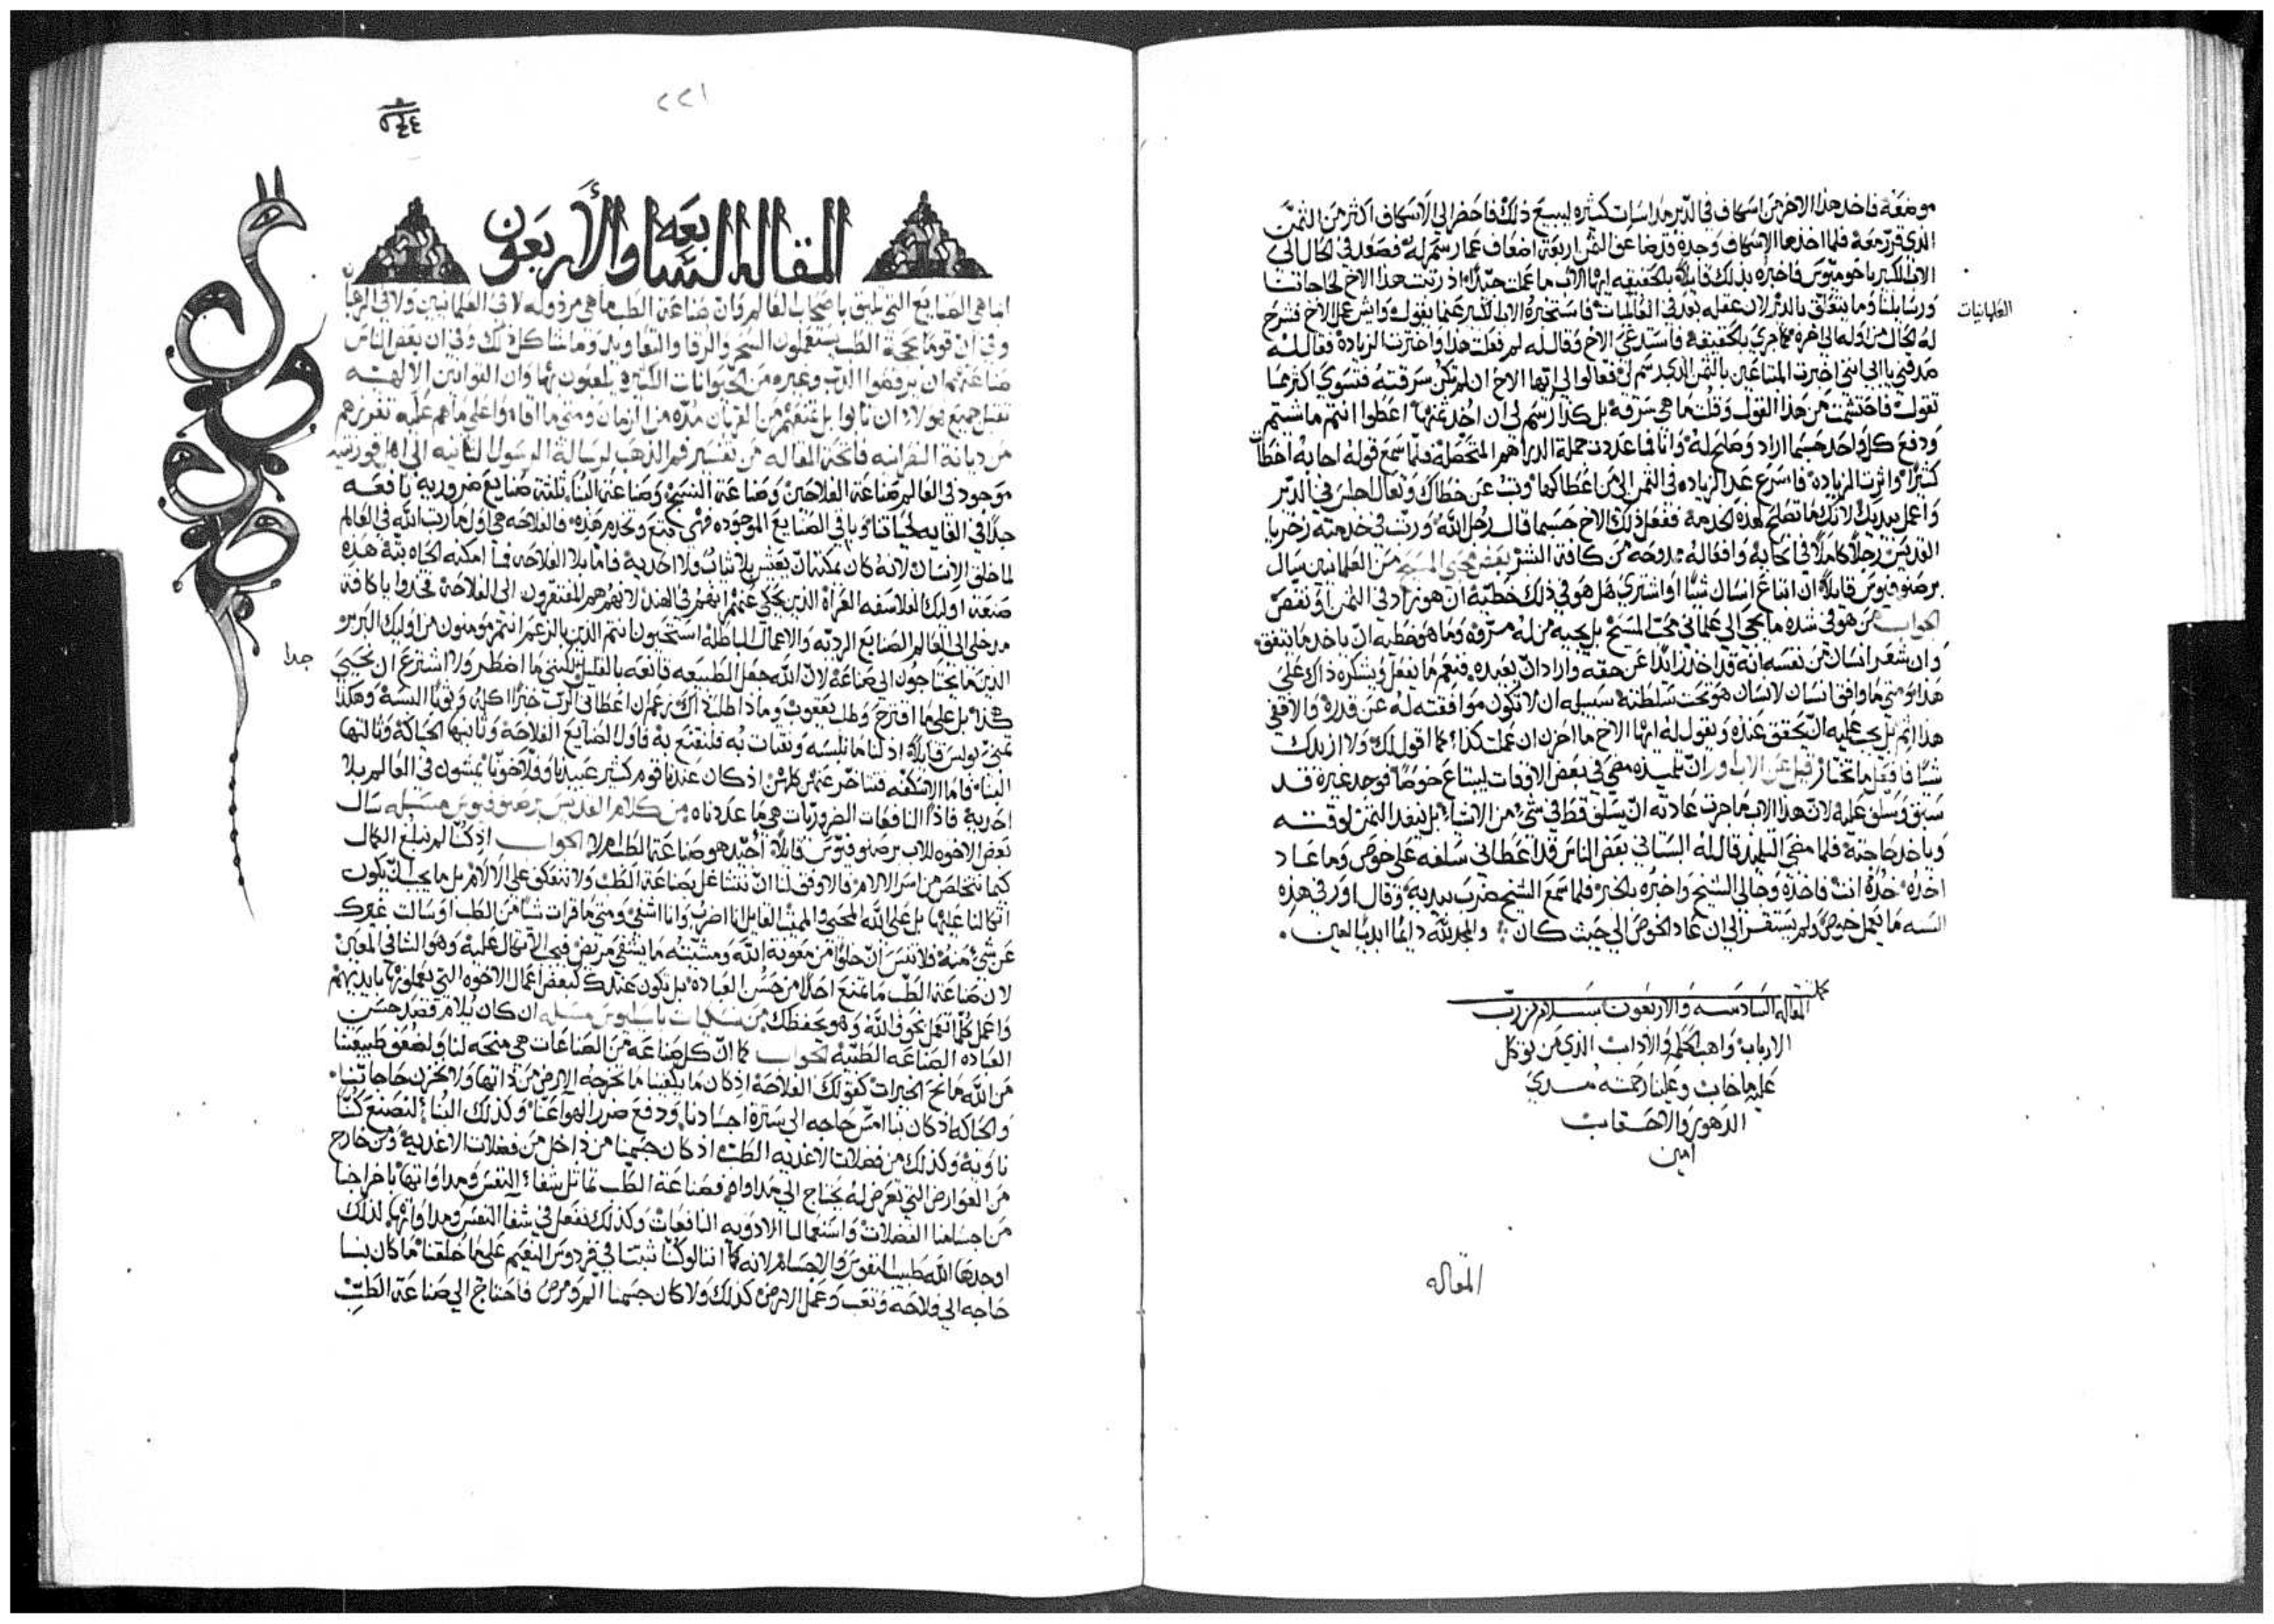 موضعه فاخد هذا الاخ من اسكاف في الدير مداسات كثيره ليبيع ذلك فاحضر الي الاسكاف اكثر من الثمن
الذي قرر معه فلما اخذها الاسكاف وجده قد ضاعف الثمن اربعة اضعاف عما رسم له فصعد في الحال الى
الاب الكبير باخوميوس فاخبره بذلك قايلا بالحقيقه ايها الاب ما عملت جيدا اذ رتبت هذا الاخ لحاجاتنا
ورسايلنا وما يتعلق بالدير لان عقله بعد في العالميات فاستخبره الاب الكبير عما يقول وايش عمل الاخ فشرح
العلمانيات
له الحال من اوله الي اخره مما جري بالحقيقه فاستدعي الاخ وقال له لم فعلت هذا واخترت الزيادة فقال له
صدقني يا ابي انني اخبرت المبتاعين بالثمن الذي رسم لي فقالوا لي ايها الاخ ان لم تكن سرقته فتسوي اكثر مما
تقول فاحتشمت من هذا القول وقلت ما هي سرقه بل كذا رسم لي ان اخد ثمنها اعطوا انتم ما شيتم
ودفع كل واحد حسبما اراد وصلح له وانا فما عددت جملة الدراهم المتحصله فلما سمع قوله اجابه اخطات
كثيرا واثرت الزياده فاسرع غدا الزياده في الثمن الى من اعطاكها وتب عن خطاك وتعال اجلس في الدير
واعمل بيديك لانك ما تصلح لهذه الخدمة ففعل ذلك الاخ حسبما قال رجل الله ورتب في خدمته زخريا
القديس رجلا كاملا في وافعاله ممدوحه من كافة البشر بعض محبي المسيح من العلمانيين سال
برصنوفيوس قايلا ان ابتاع انسان شيا او اشتري هل هو في ذلك خطيه ان هو زاد في الثمن او نقص
الجواب من هو في شده ما يجي الي علماني محب المسيح بل يجيه من له وما هو خطيه ان ياخد ما يتفق
وان شعر انسان من نفسه انه قد اخد زايدا عن حقه واراد ان يعيده فنعم ما يفعل ويشكره ذاك على
هذا ومتي ما وافق انسان لانسان هو تحت سلطنة سبيله ان لا تكون موافقته له عن قدره والا ففي
هذا اثم بل يجب عليه ان يحقق عنده ويقول له ايها الاخ ما احزن ان عملت كذا مما اقول لك ولا ازيدك
شيا فافعل ما تختار قيل عن الاب اور ان تلميذه مضي في بعض الاوقات ليبتاع خوصا فوجد غيره قد
سبق وسلف عليه لان هذا الاب ما جرت عادته ان يسلف قط في شي من الاشياء بل ينفد الثمن لوقته
وياخد حاجته فلما مضي التلميذ قال له البستاني بعض الناس قد اعطاني سلفه على خوص وما عاد
اخده خده انت فاخده وجا الي الشيخ واخبره بالخبر فلما سمع الشيخ ضرب بيديه وقال اور في هذه
السنه ما يعمل خوص ولم يستقر الي ان عاد الخوص الي حيث كان والمجد لله دايما ابديا امين
كملت
المقاله السادسه والاربعون بسلام من رب
الارباب واهب الحكم والاداب الذي من توكل
عليه ما خاب وعلينا رحمته مدي
الدهور والاحقاب
امين
المقاله
٢٢١
المقاله السابعه والأربعون
انما هي الصنايع التي تليق باصحاب العالم وان صناعة الطب ما هي مرذوله لا في العلمانيين ولا في الرهبان
وفي ان قوما بحجة الطب يستعملون السحر والرقا والتعاويد وما شاكل ذلك وفي ان بعض الناس
صناعتهم ان يرقصوا الدب وغيره من الحيوانات الكثيره يلعبون بها وان القوانين الالهيه
تقبل جميع هولاء ان تابوا بل تمنعهم من القربان مده من الزمان ومتي ما اقاموا علي ما هم عليه تفرزهم
من ديانة النصرانيه فاتحة المقاله من تفسير فم الذهب لرسالة الرسول الثانيه الى اهل قورنثيه
موجود في العالم صناعة الفلاحين وصناعة النسج وصناعة البناء ثلثة صنايع ضروريه نافعه
جدا في الغايه لحياتنا وباقي الصنايع الموجوده فهي تتبع وتخدم هذه فالفلاحه هي اول ما رتب الله في العالم
لما خلق الانسان لانه كان يمكنه ان يعيش بلا ثياب ولا احذية فاما بلا الفلاحه فما امكنه الحياه بتة هذه
صنعة اوليك الفلاسفه العراة الذين يحكي عنهم انهم في الهند لانهم هم المفتقرون الى الفلاحة فخدوا يا كافة
مدخلي الى العالم الصنايع الرديه والاعمال الباطله استحيوا انتم الذين بالزعم انتم مومنون من اوليك البربر
جدا
الذين ما يحتاجون الي صناعة لان الله جعل الطبيعه قانعه بالقليل لكنني ما اضطر ولا اشترع ان نحيى
كذا بل على ما اقترح وطلب يعقوب وماذا طلب ذاك زعم ان اعطاني الرب خبزا اكله وثوبا البسه وهكذا
تمنى بولس قايلا اذ لنا ما نلبسه ونقتات به فلنقنع به فاول الصنايع الفلاحة وثانيها الحياكة وثالثها
البناء فاما الاسكفه فتتاخر عنهم كلهم اذ كان عندنا قوم كثير عبيدنا وفلاحونا يمشون في العالم بلا
احذية فاذا النافعات الضروريات هي ما عددناه من كلام القديس برصنوفيوس مسله سال
بعض الاخوه للاب برصنوفيوس قايلا اجيد هو صناعة الطب ام لا الجواب اذ كنا لم نبلغ الكمال
كيما نتخلص من اسر الالام فالاوفق لنا ان نتشاغل بصناعة الطب ولا نتعكف على الالام بل ما يجب ان يكون
اتكالنا عليها بل على الله المحيي والمميت القايل انا اضرب وانا اشفي ومتي ما قرات شيا من الطب او سالت غيرك
عن شي منه فلا تنس ان خلوا من معونة الله ومشيته ما يشفي مريض فيجب الاتكال عليه وهو الشافي المعين
لان صناعة الطب ما تمنع احدا من حسن العباده بل تكون عندك كبعض اعمال الاخوه التي يعملونها بايديهم
واعمل كلما تعمل بخوف الله وهو يحفظك من نسكيات باسيليوس مسله ان كان يلام قصد حسن
العباده الصناعه الطبيه الجواب كما ان كل صناعة من الصناعات هي منحه لنا ولضعف طبيعتنا
من الله مانح الخيرات كقولك الفلاحة اذ كان ما يكفينا ما تخرجه الارض من ذاتها ولا حاجاتنا
والحياكه اذ كان بنا امس حاجه الى سترة اجسادنا ودفع ضرر الهوا عنا وكذلك البناء
وكذلك من فضلات الاغديه الطب اذ كان جسمنا من داخل من فضلات الاغدية ومن خارج
من العوارض التي تعرض له يحتاج الي مداواه فصناعة الطب تماثل شفاء النفس ومداواتها باخراجنا
من اجسامنا الفضلات واستعمالنا الادويه النافعات وكذلك نفعل في شفا النفس ومداواتها لذلك
اوجدها الله طبيب النفوس والاجسام لانه كما اننا لو كنا ثبتنا في فردوس النعيم على ما خلقنا ما كان بنا
حاجه الي فلاحه وتعب وعمل الارض كذلك ولا كان جسمنا ومرض فاحتاج الي صناعة الطب